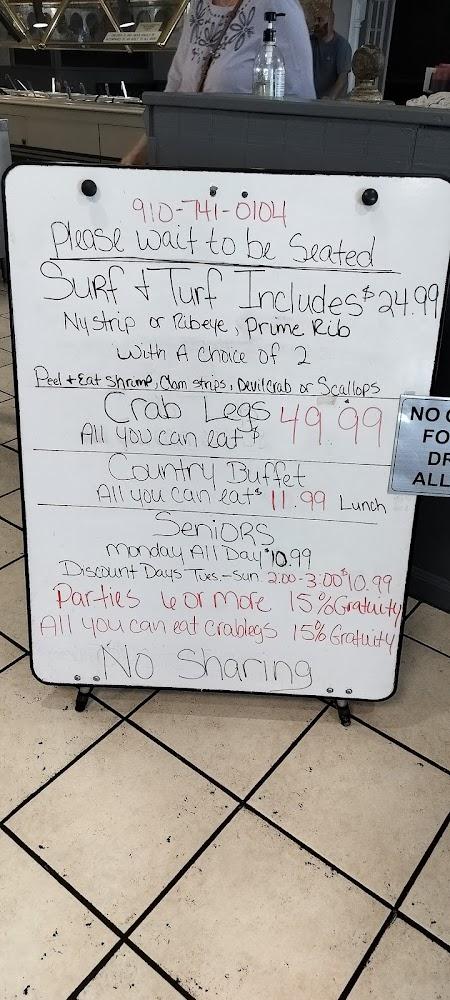 910-741-0104
Please Wait to be Seated
Surf & Turf Includes $24.99
Ny strip or Ribeye, Prime Rib
With A Choice of 2
Peel + Eat Shrimp, Clam strips, Devil crab or Scallops
Crab Legs 49.99
All you can eat $
Country Buffet
All you can eat $11.99 Lunch
Seniors
Monday All Day $10.99
Discount Days Tues.-Sun. 2:00-3:00 $10.99
Parties 6 or more 15% Gratuity
All you can eat crablegs 15% Gratuity
No Sharing
NO
FO
DR
ALL